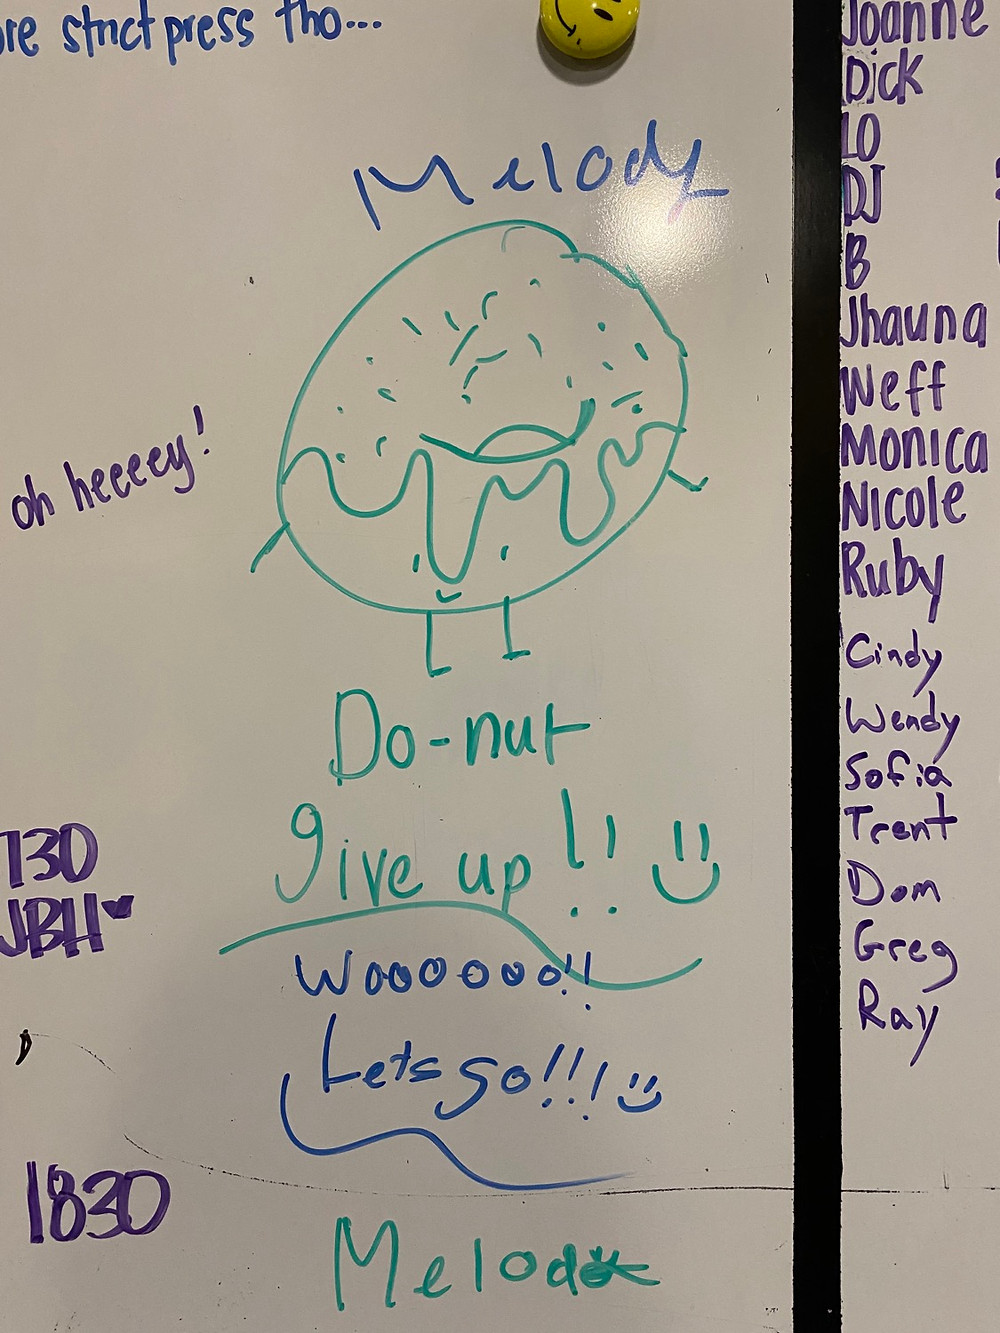 strict press tho...
Melody
oh heeeey!
Do-nut
give up!!
130
JBH
Woooooo!!
Lets go!!!
1830
Joanne
Dick
LO
DJ
B
Jhauna
Weff
Monica
Nicole
Ruby
Cindy
Wendy
Sofia
Trent
Dom
Greg
Ray